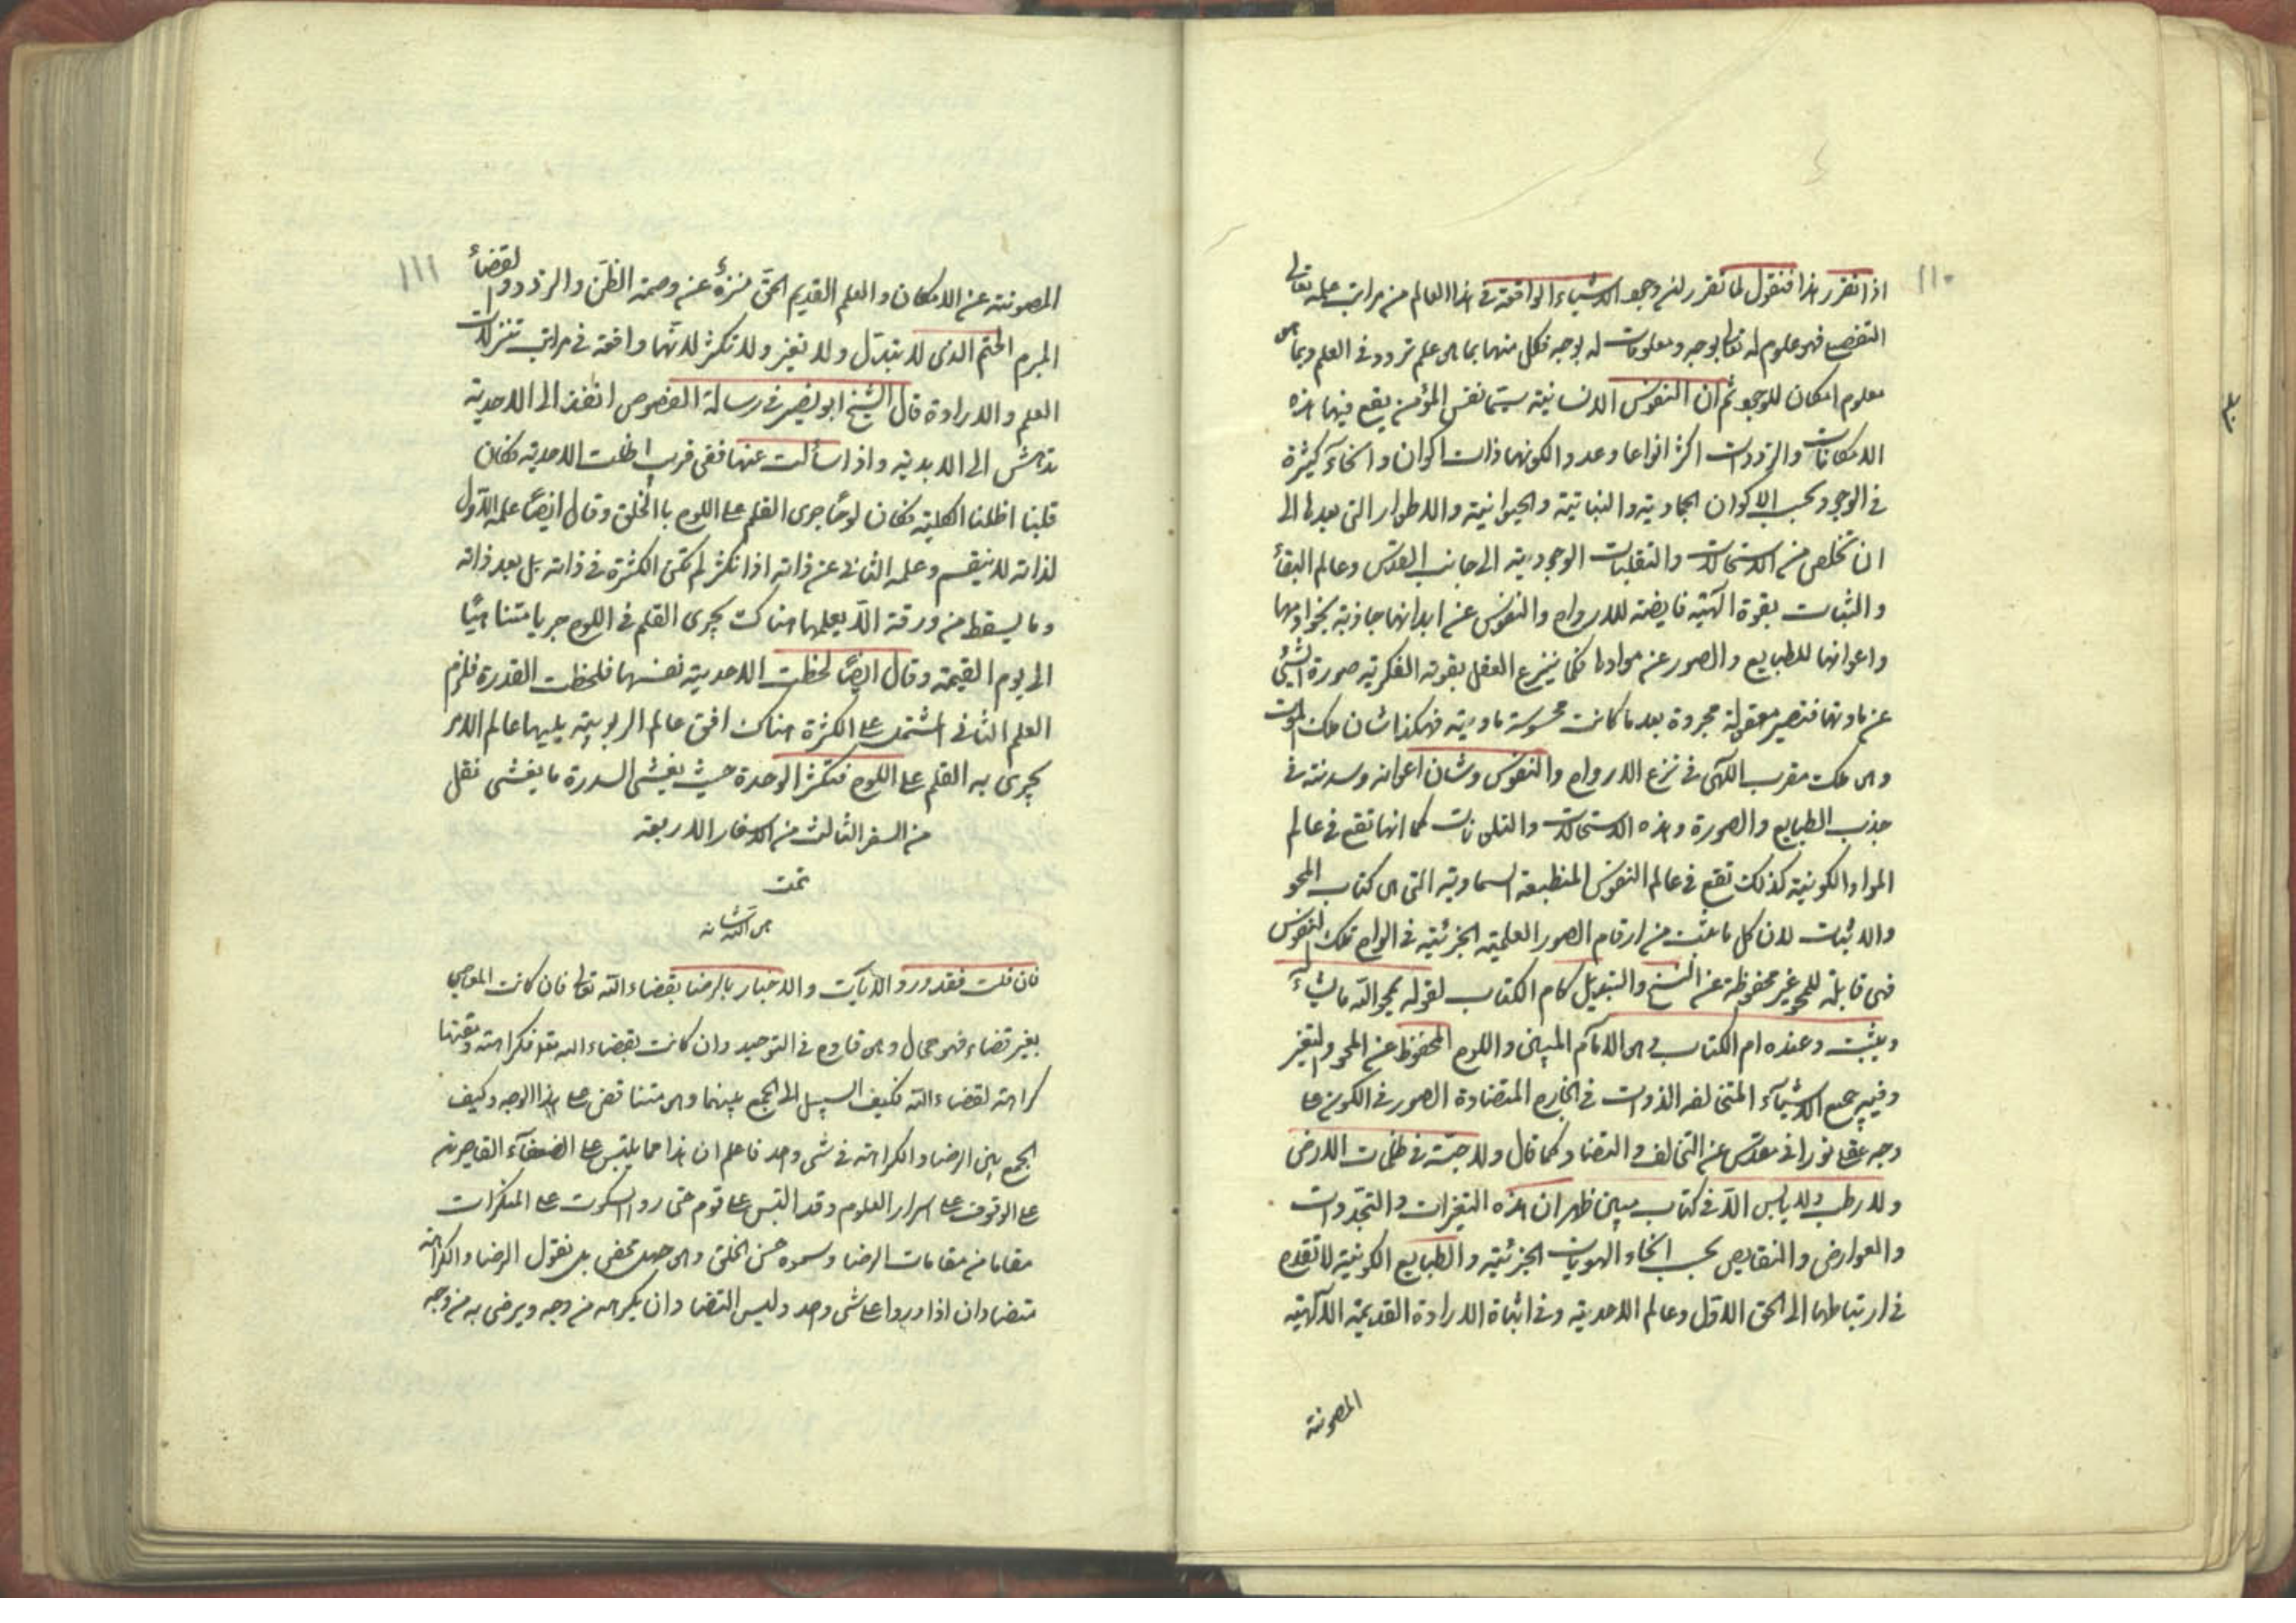 ١١٠
اذا تقرر هذا فنقول لما تقرر ان وجود الاشياء الواقعة في هذا العالم من مراتب علمه تعالى
التفصيلي فهو علوم له تعالى بوجه ومعلومات له بوجه فكل منهما بما هى علم تردد في العلم وبما هى
معلوم امكان للوجود ثم ان النفوس الانسانية سيما نفس المؤمن يقع فيها هذه
الامكانات والترددات اكثر انواعا وعددا لكونها ذات اكوان وانحآء كثيرة
في الوجود بحسب الاكوان الجمادية والنباتية والحيوانية والاطوار التى بعدها الى
ان تخلص من الاستحالات والتقلبات الوجودية الى جانب القدس وعالم البقآء
والثبات بقوة الهية قابضة للارواح والنفوس عن ابدانها جاذبة بخوادمها
واعوانها للطبايع والصور عن موادها فكما ينزع العقل بقوته الفكرية صورة الشئ
عن مادتها فتصير معقولة مجردة بعد ما كانت محسوسة مادية فهكذا شان ملك الموت
وهى ملك مقرب الهى في نزع الارواح والنفوس وشان اعوانه وسدنته في
جذب الطبايع والصورة وهذه الاستحالات والتلونات كما انها تقع في عالم
المواد الكونية كذلك تقع في عالم النفوس المنطبعة السماوية التى هى كتاب المحو
والاثبات لان كل ما يثبت من ارقام الصور العلمية الجزئية في الواح تلك النفوس
فهى قابلة للمحو غير محفوظة عن النسخ والتبديل كام الكتاب لقوله يمحو الله ما يشآء
ويثبت وعنده ام الكتاب وهى الامام المبين واللوح المحفوظ عن المحو والتغير
وفيه جميع الاشيآء المتخالفه الذوات في الخارج المتضادة الصور في الكون على
وجه عقلى نورانى مقدس عن التخالف والتضاد كما قال ولا حبة في ظلمات الارض
ولا رطب ولا يابس الا في كتاب مبين ظهر ان هذه التغيرات والتجددات
والعوارض والنقايص بحسب انحاء الهويات الجزئية والطبايع الكونية لا تقدح
في ارتباطها الى الحق الاول وعالم الاحدية وفي اثبات الارادة القديمة الالهية
المصونة
١١١
المصونة عن الامكان والعلم القديم الحق منزه عن وصمة الظن والتردد والقضآء
المبرم الحتم الذى لا يتبدل ولا تغير ولا تكثر لانها واقعة في مراتب تنزلات
العلم والارادة قال الشيخ ابو نصر في رسالة الفصوص انفذ الى الاحدية
تدهش الى الابدية واذا سألت عنها فهى قريب اظلت الاحدية فكان
قلبا اظلنا الكلية فكان لوحا جرى القلم على اللوح بالخلق وقال ايضا علمه الاول
لذاته لا ينقسم وعلمه الثانى عن ذاته اذا تكثر لم تكن الكثرة في ذاته بل بعد ذاته
وما يسقط من ورقة الا يعلمها هناك يجرى القلم في اللوح جريا متناهيا
الى يوم القيمة وقال ايضا لحظت الاحدية نفسها فلحظت القدرة فلزم
العلم الثانى المشتمل على الكثرة هناك افق عالم الربوبية يليها عالم الامر
يجرى به القلم على اللوح فتكثر الوحدة حيث يغشى السدرة ما يغشى نقل
من السفر الثالث من الاسفار الاربعة
تمت
فان قلت فقد ورد الايات والاخبار بالرضا بقضاء الله تعالى فان كانت المعاصى
بغير قضاء فهو محال وهى قادح في التوحيد وان كانت بقضاء الله تعالى فكراهته ومقتها
كراهته لقضاء الله فكيف السبيل الى الجمع بينهما وهى متناقض على هذا الوجه وكيف
الجمع بين الرضا والكراهة في شى واحد فاعلم ان هذا مما يلتبس على الضعفآء القاصرين
على الوقوف على اسرار العلوم وقد التبس على قوم حتى رووا السكوت على المنكرات
مقاما من مقامات الرضا وسموه حسن الخلق وهى جهل محض بل نقول الرضا والكراهة
متضادان اذا وردا على شى واحد وليس التضاد ان يكره من وجه ويرضى به من وجه